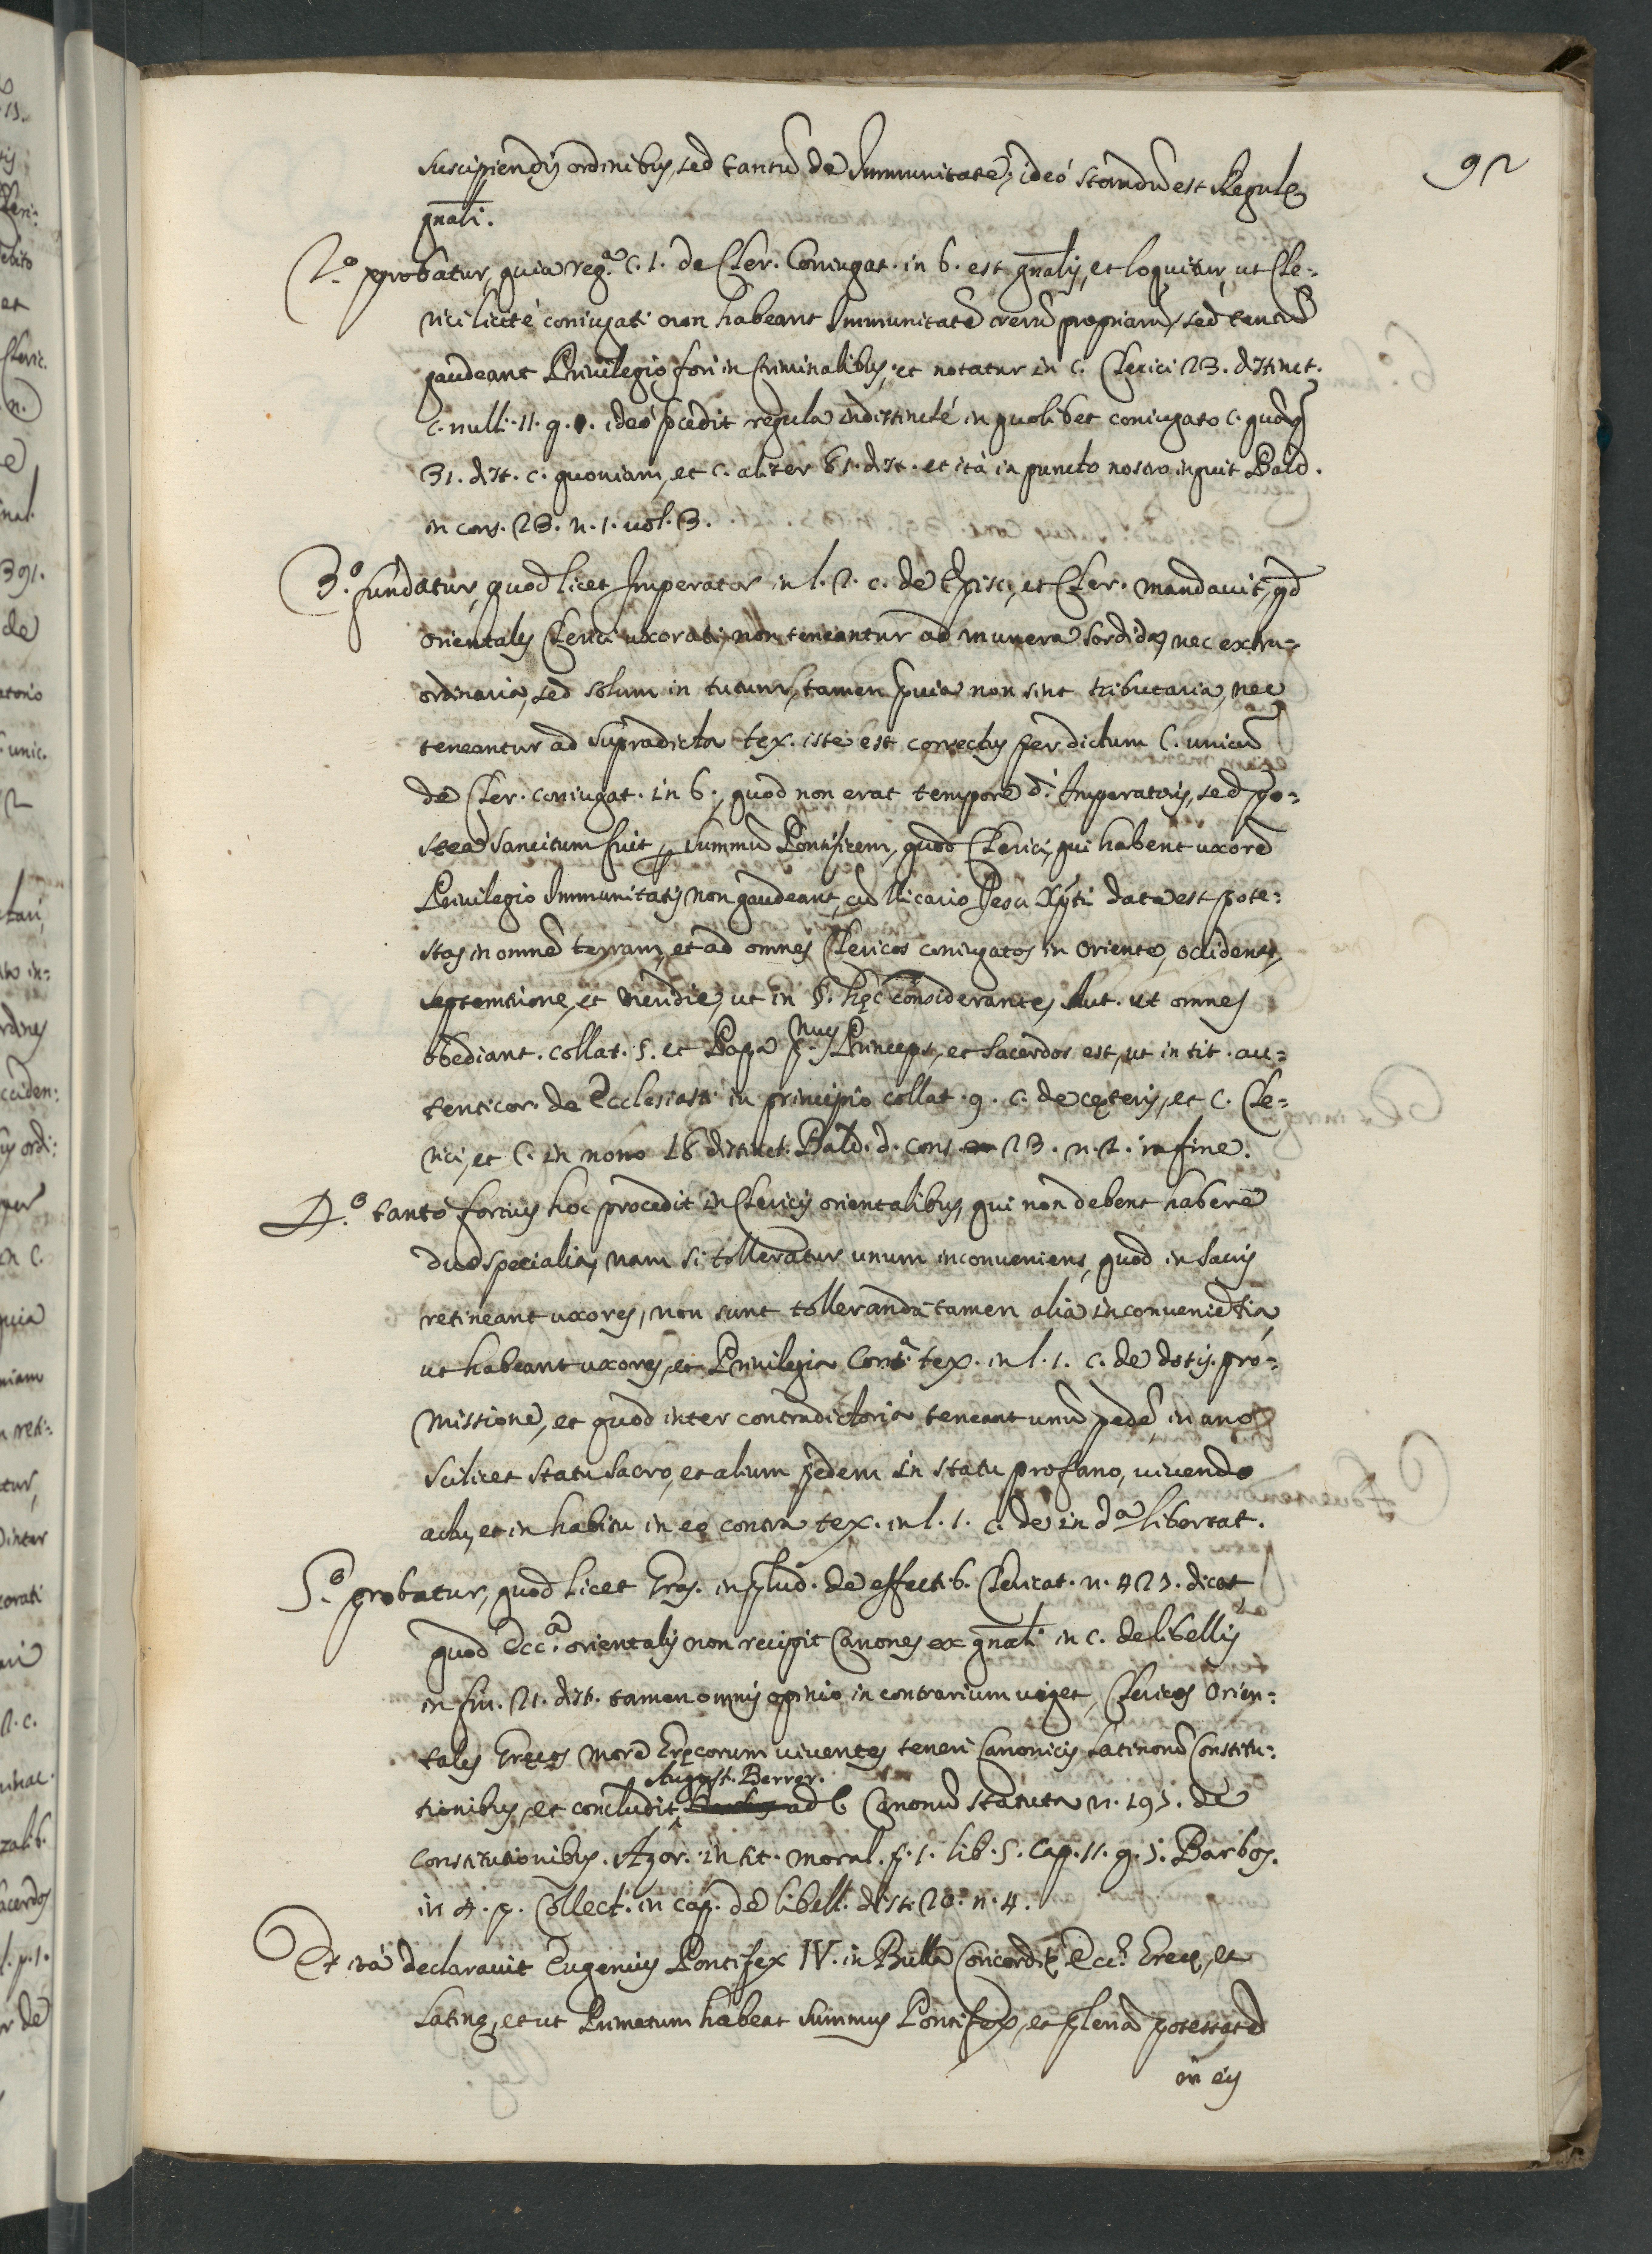 92
suscipiendis ordinibus, sed tantũ de Immunitate; ideó standũ est Regulę
gnãli.
2.º probatur, quia reg.ª c. 1. de Cler. Coniugat. in 6. est gnãlis, et loquitur, ut Cle=
rici licité coniugati non habeant Immunitatẽ rerũ propriarũ, sed tantũ
gaudeant Privilegio fori in Criminalibus, et notatur in c. Clerici 23. distinct.
c. nulli. 11. q. 1. ideó pcedit regula indistincté in quolibet coniugato c. quoq
31. dist. c. quoniam, et c. aliter 81. dist. et itá in puncto nostro inquit Bald.
in cons. 23. n. 1. vol. 3.
3.º fundatur, quod licet Imperator in l. 2. c. de Episc. et Cler. mandavit, qd
orientales Clerici uxorati non teneantur ad munera sordida, nec extra=
ordinaria, sed solum in tuturis, tamen quia non sint tributaria, nec
teneantur ad supradicta tex. iste est correctus per dictum C. unicũ
de Cler. coniugat. in 6., quod non erat tempore d.ⁱ Imperatoris, sed po=
stea sancitum fuit p summũ Pontificem, quod Clerici, qui habent uxorẽ
Privilegio Immunitatis non gaudeant, cũ Vicario Jesu Xpti data est pote=
stas in omnẽ terram, et ad omnes Clericos coniugatos in Oriente, occidente,
septemtrione, et meridie, ut in §. hęc considerantes, Aut. ut omnes
obediant. collat. 5. et Papa p.mus Princeps, et sacerdos est, ut in tit. au=
tenticor. de Ecclesiast. in principio collat. 9. c. de cęteris, et c. Cle=
rici, et C. in nono 16 distinct. Bald. d. cons. 23. n. 2. in fine.
4.º tantó fortius hoc procedit in Clericis orientalibus, qui non debent habere
duo specialia, nam si tolleratur unum inconveniens, quod in sacris
retineant uxores, non sunt tolleranda tamen alia inconveniẽtia,
ut habeant uxores, et Privilegia Cont.ª tex. in l. 1. c. de dotis pro=
missione, et quod inter contradictoria teneant unũ pedẽ in uno
scilicet statu sacro, et alium pedem in statu profano, vivendo
actu, et in habitu in eo contra tex. in l. 1. c. de in d.ª libertat.
5.º probatur, quod licet Eras. in plud. de effect. 6. Clericat. n. 425. dicat
quod Ecc.ª orientalis non recipit Canones ex gnãli in c. de libellis
in fin. 21. dist. tamen omnis opinio in contrarium viget, Clericos Orien=
tales Grecos more Gręcorum viventes teneri Canonicis Latinorũ Constitu=
August. Berror.
tionibus, et concludit, ad c. Canonũ statuta n. 195. de
constitutionibus. Azor. instit. moral. p. 1. lib. 5. cap. 11. q. 5. Barbos.
in 4. p. Collect. in cap. de libell. dist. 20. n. 4.
Et itá declaravit Eugenius Pontifex IV. in Bulla Concordię Ecc.ę Gręcę, et
Latinę, et ut Primatum habeat summus Pontifex, et plenã potestatẽ
in eis